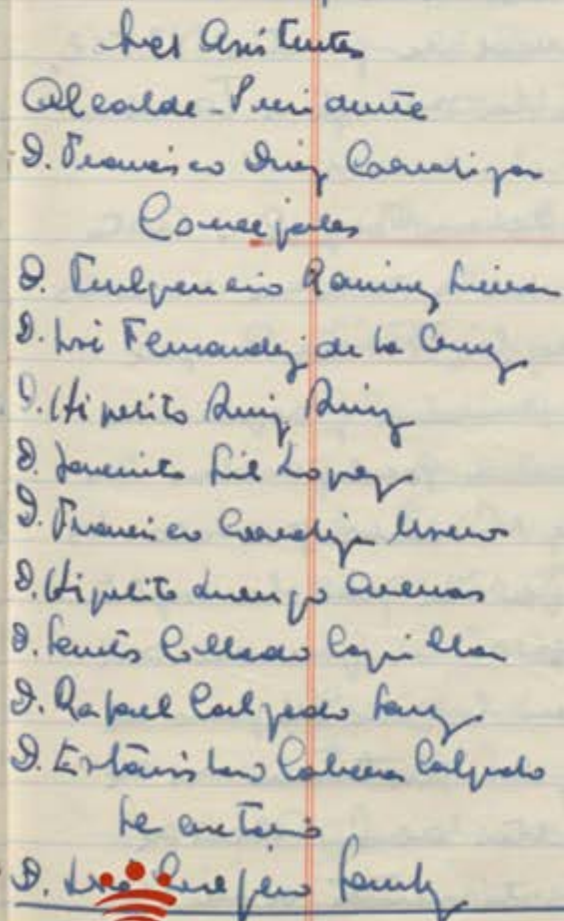 Sres Asistentes
Alcalde-Presidente
D. Francisco Diaz
Concejales
D. Fulgencio Ramirez
D. José Fernandez de la Cruz
D. Hipolito Ruiz Ruiz
D. Jacinto Gil Lopez
D. Francisco Moreno
D. Hipolito Luengo Arenas
D. Collado Capilla
D. Rafael Calzado Sanz
D. Estanislao Cabrera Calzado
Secretario
D. José